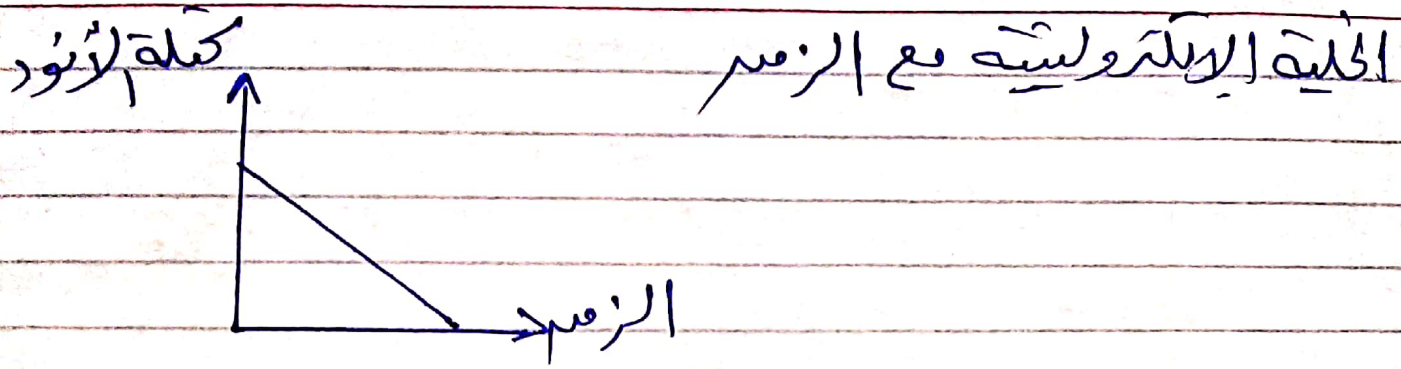 الخلية الإلكتروليتية مع الزمن
كتلة الأنود
الزمن